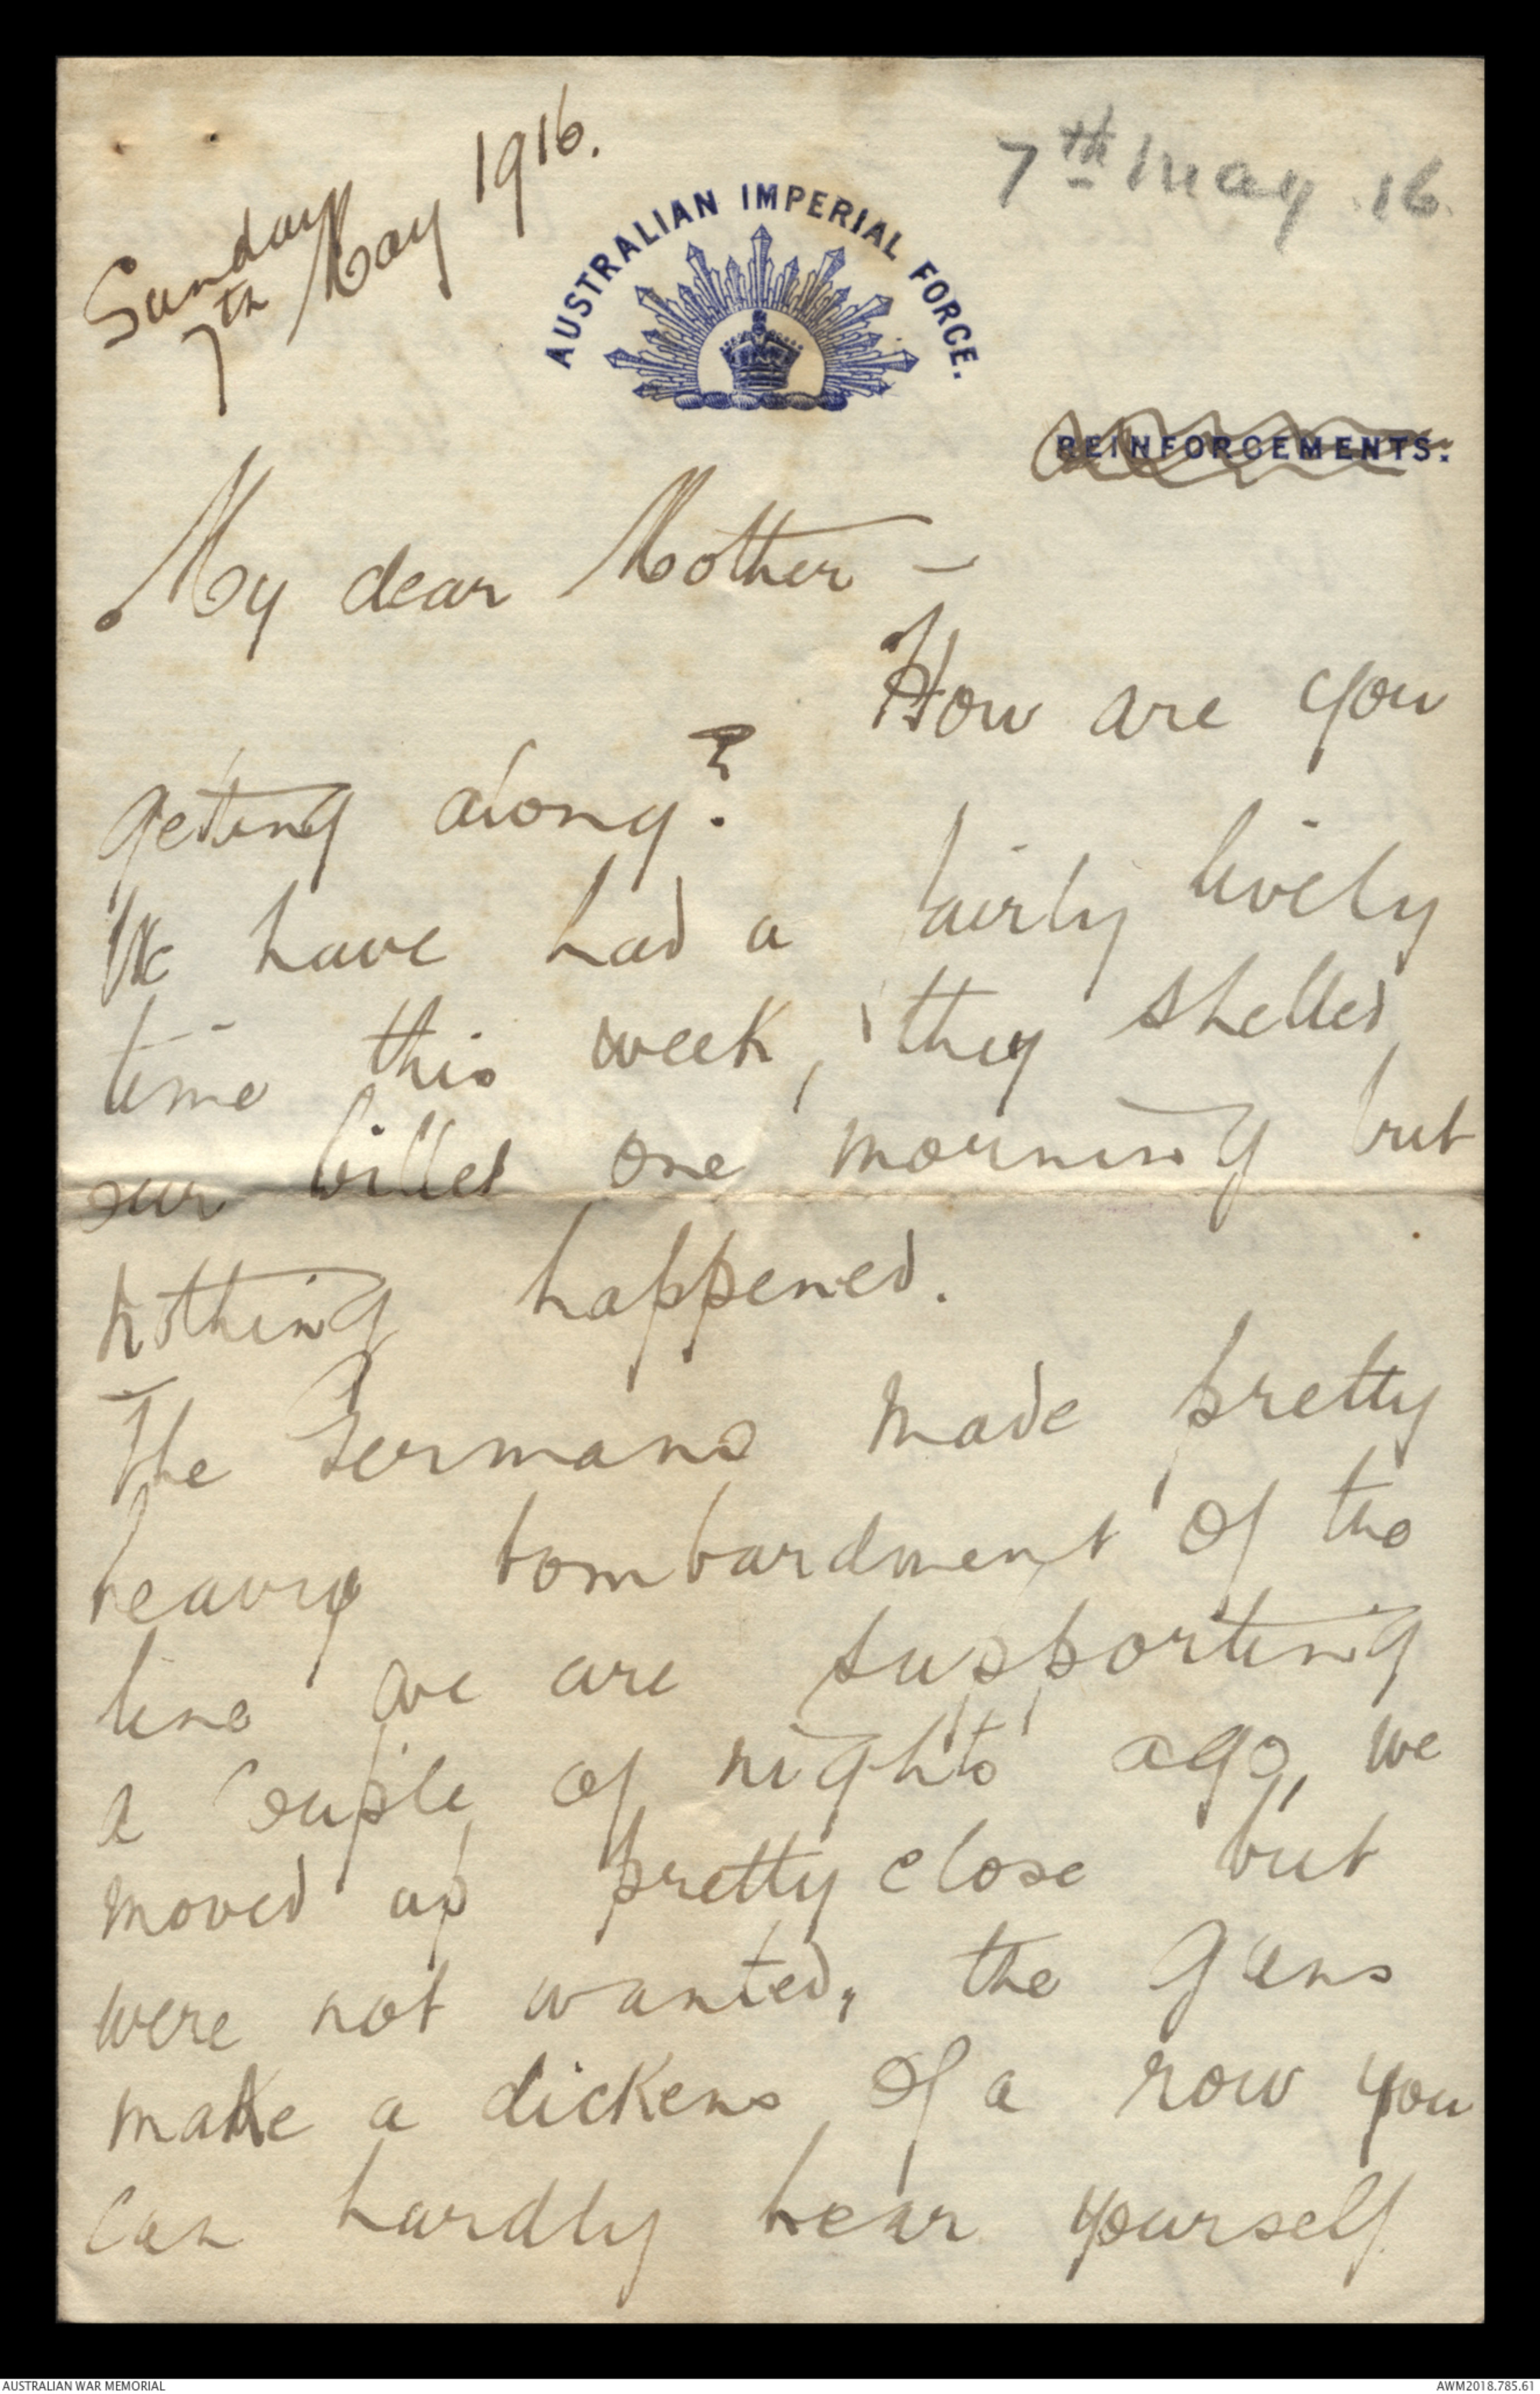 Sunday
7th May 1916.
7th May 16
AUSTRALIAN IMPERIAL FORCE.
REINFORCEMENTS.
My dear Mother -
How are you
getting along?
We have had a fairly lively
time this week, they shelled
our billet one morning but
nothing happened.
The Germans made pretty
heavy bombardment of the
line we are supporting
a couple of nights ago, we
moved up pretty close but
were not wanted, the guns
make a dickens of a row you
can hardly hear yourself
AUSTRALIAN WAR MEMORIAL
AWM2018.785.61